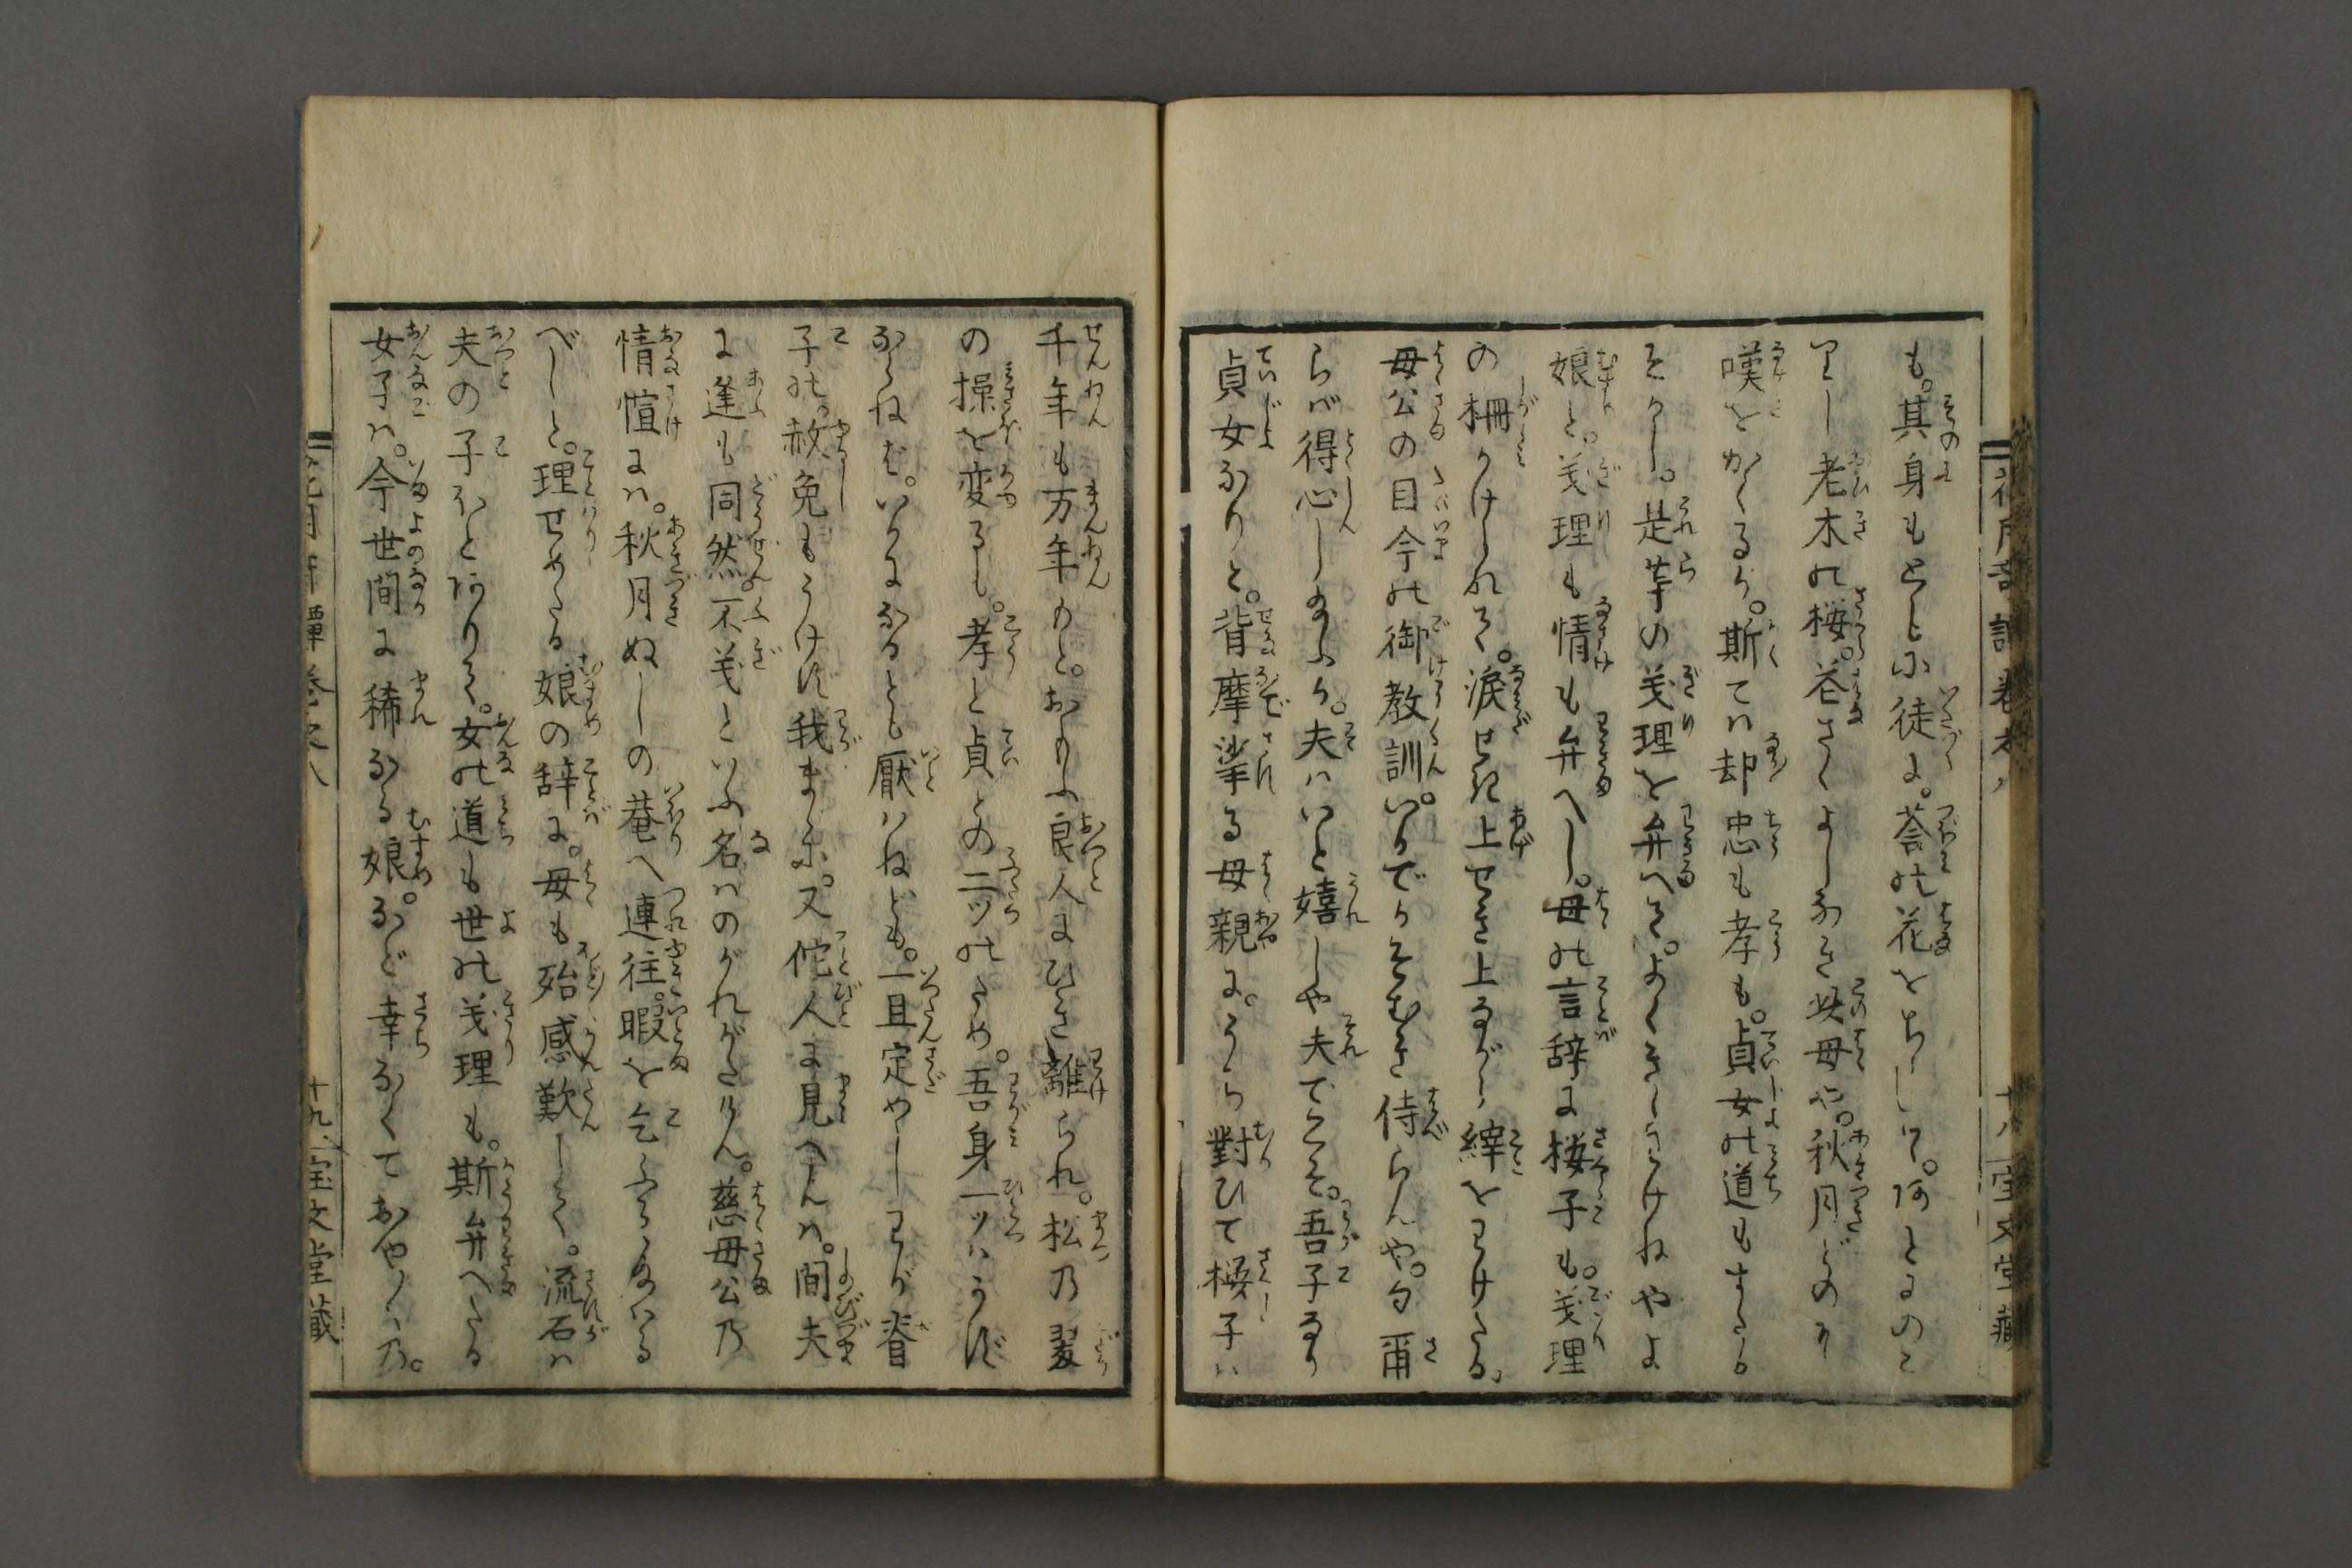 も。其身もともに徒に。莟の花をちらして。何とまのこ
りし老木の桜。花さくよしなき此母や。秋月どのゝ
嘆をかくるが。斯ては却忠も孝も。貞女の道もすたる
ぞかし。是等の義理を弁へて。よくきゝわけねやよ
娘と。義理も情も弁へし。母の言辞に桜子も。義理
の柵かけられて。涙せき上せき上ながら縡をわけたる。
母公の目今の御教訓。いかでかそむき侍らんや。勿爾
らば得心し給ふか。夫はいと嬉しや夫でこそ。吾子なり
貞女なりと。背摩挲る母親に。うち對ひて桜子は
千年も万年もと。おもふ良人にひき離られ。松乃翠
の操を変るも。孝と貞との二ツのため。吾身一ツはうけ
ならねば。いかになるとも厭はねども。一旦定めしわが脊
子の。赦免もうけず我まゝに。又佗人に見へんは。間夫
に逢も同然。不義といふ名はのがれがたけん。慈母公乃
情愃には。秋月ぬしの菴へ連往。暇を乞ふて給はる
べしと。理せめたる娘の辞に。母も殆感歎して。流石は
夫の子ほどありて。女の道も世の義理も。斯弁へたる
女子は。今世間に稀なる娘。など幸なくておや〳〵乃。
十九 宝文堂蔵